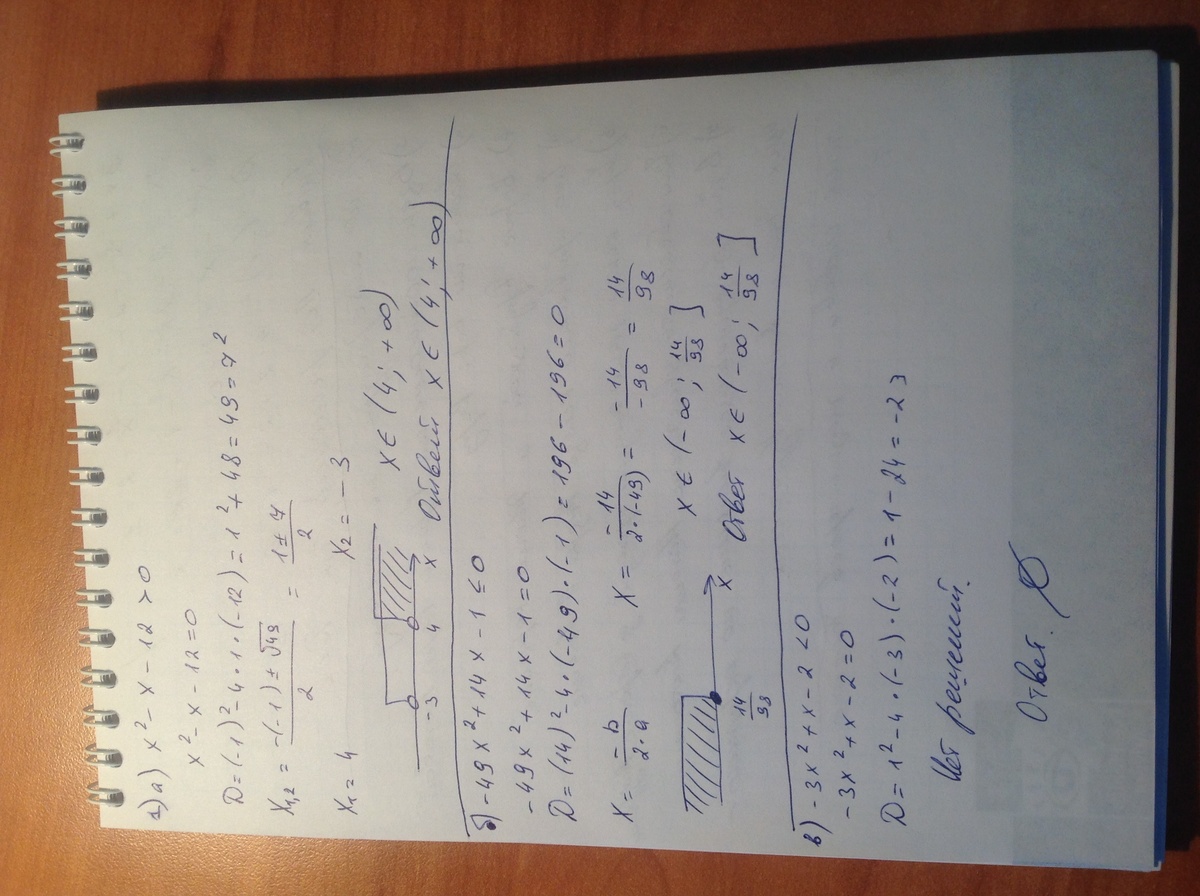 1) а) x² - x - 12 > 0
x² - x - 12 = 0
D = (-1)² - 4 · 1 · (-12) = 1² + 48 = 49 = 7²
x₁,₂ = -(-1) ± √49 / 2 = 1 ± 7 / 2
x₁ = 4 x₂ = -3
x ∈ (4; +∞)
-3 4 x Ответ x ∈ (4; +∞)
б) -49x² + 14x - 1 ≤ 0
-49x² + 14x - 1 = 0
D = (14)² - 4 · (-49) · (-1) = 196 - 196 = 0
x = -b / 2·a x = -14 / 2·(-49) = -14 / -98 = 14/98
x ∈ (-∞; 14/98]
14/98 x Ответ x ∈ (-∞; 14/98]
в) -3x² + x - 2 < 0
-3x² + x - 2 = 0
D = 1² - 4 · (-3) · (-2) = 1 - 24 = -23
Нет решений.
Ответ. ∅